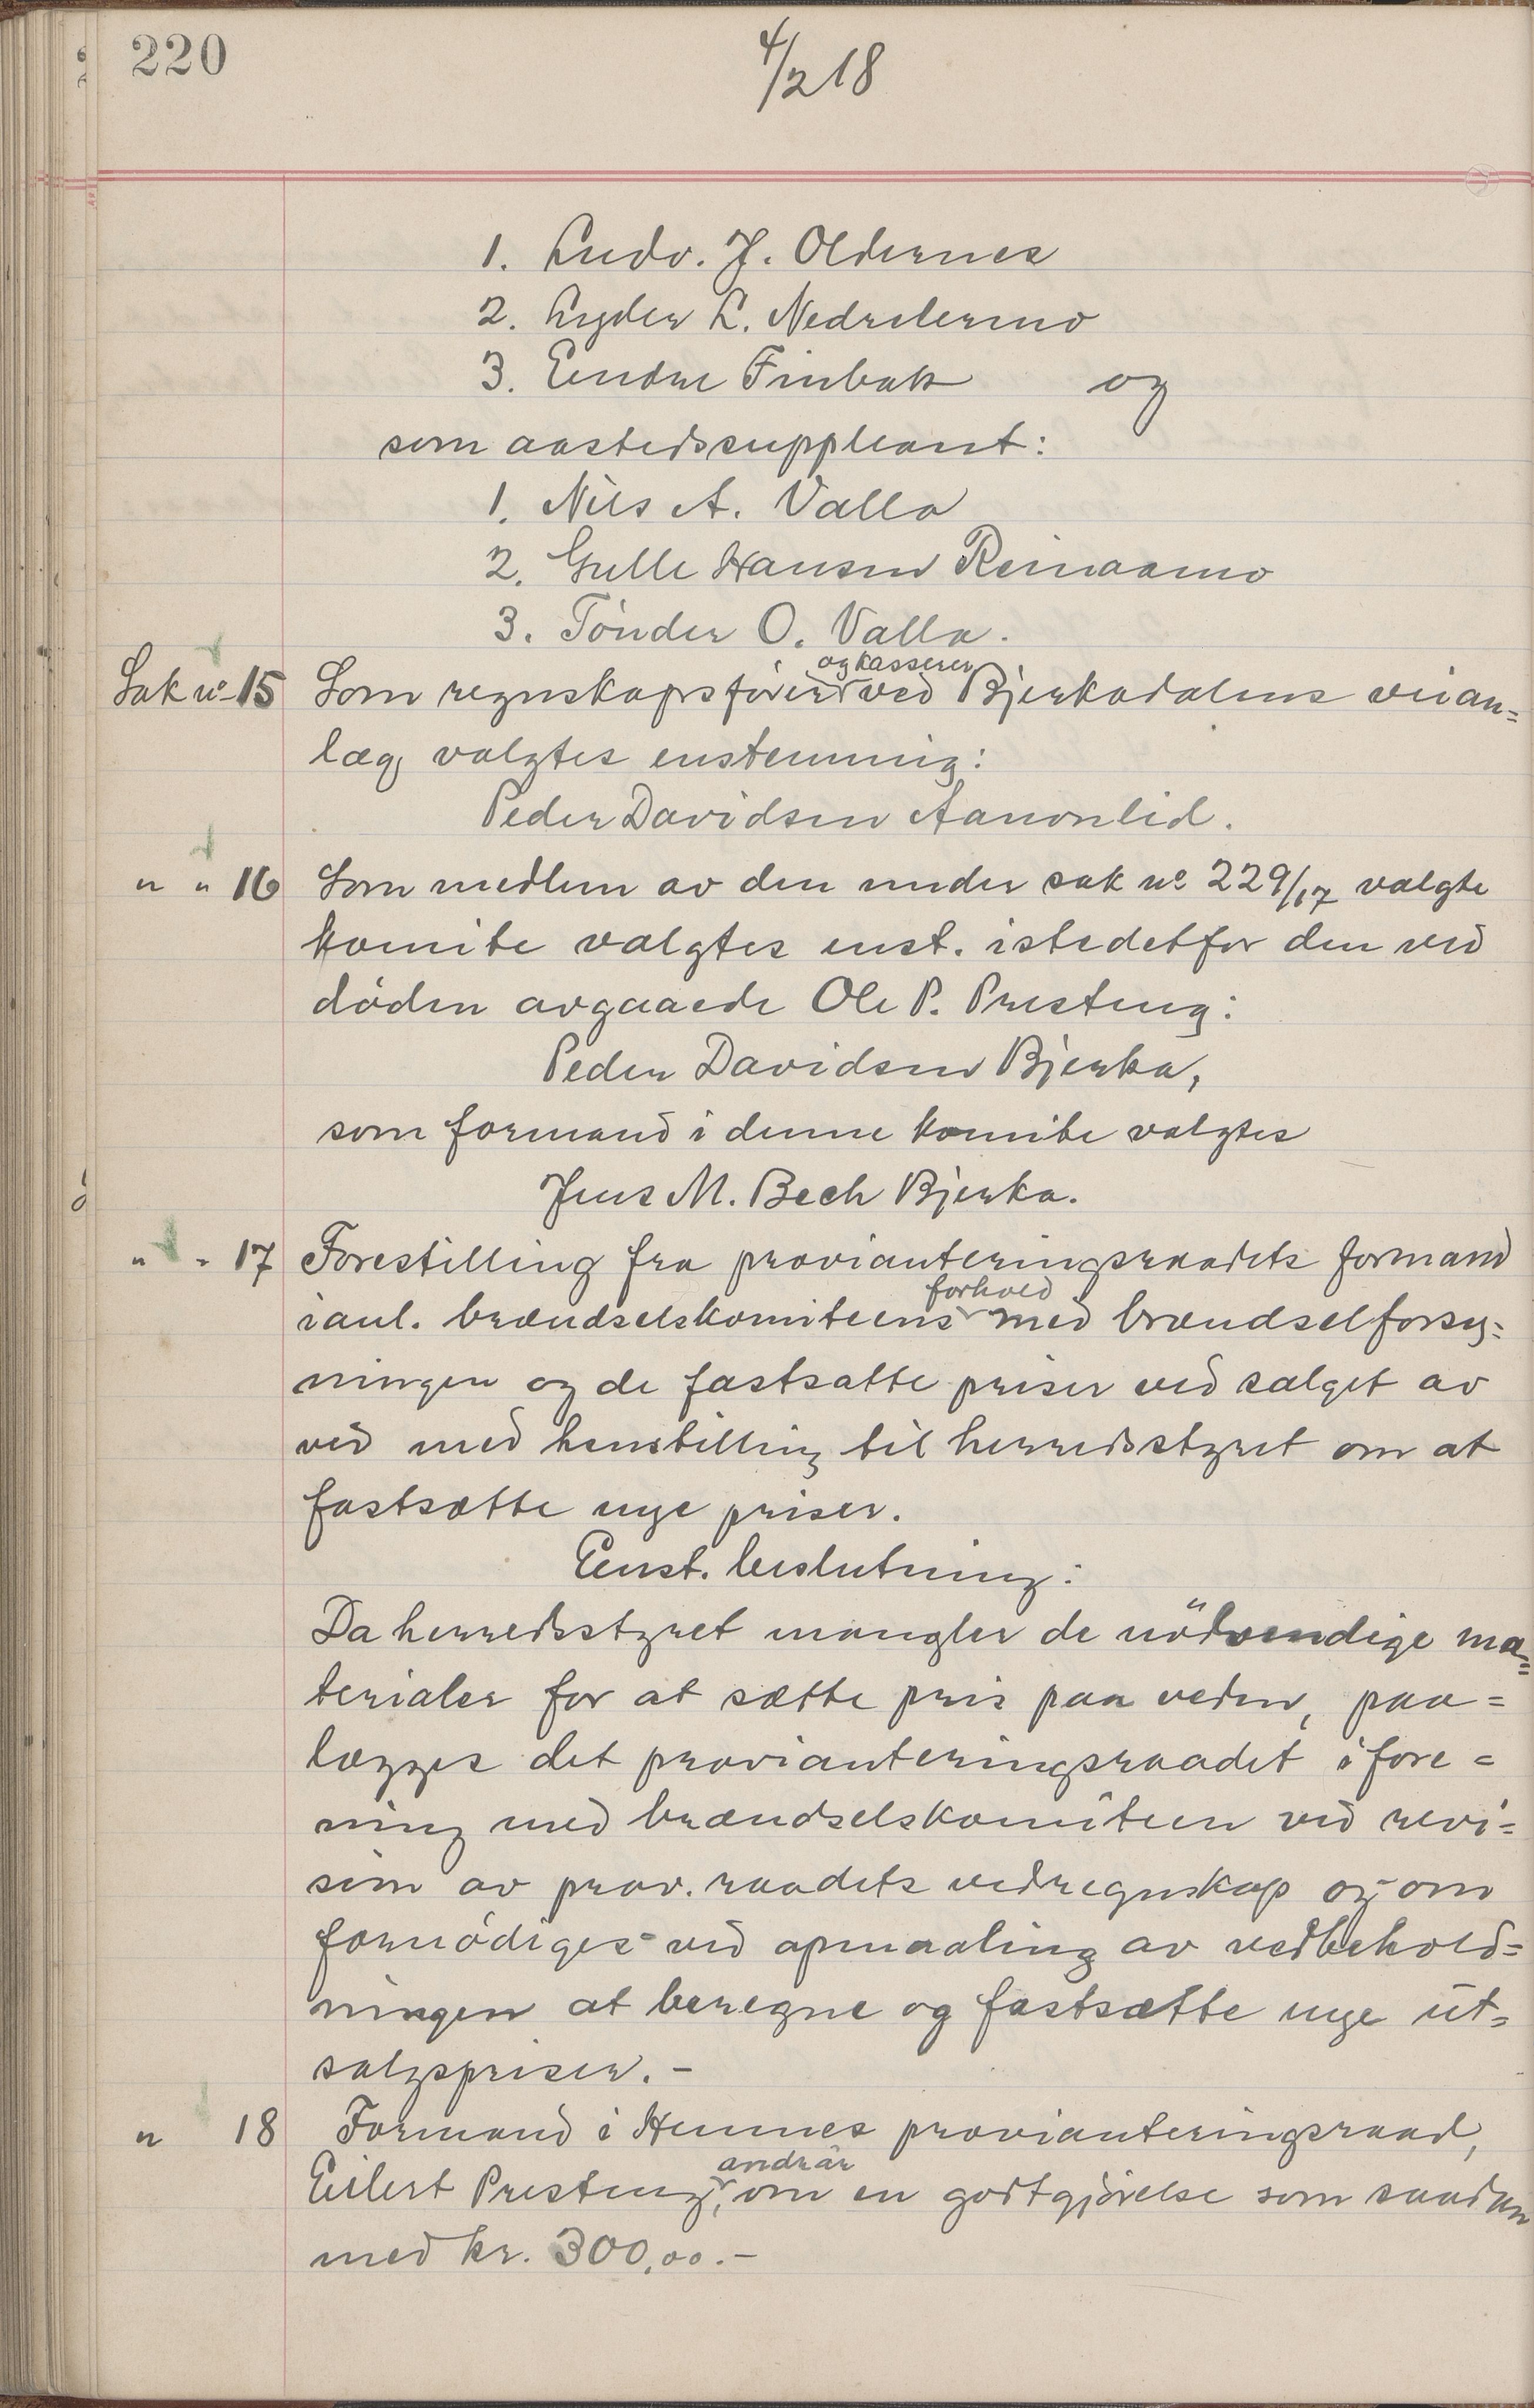 220
4/2 18
1. Ludv. J. Oldernes
2. Lyder L. Nedrelermo
3. Eendre Finbak og
som aastedssuppleant:
1. Nils A. Valla
2. Gulle Hansen Reinaamo
3. Tönder O. Valla.
og kasserer
Sak no 15 Som regnskapsförer ved Bjerkadalens veian=
læg valgtes enstemmig:
Peder Davidsen Aanonlid.
" " 16 Som medlem av den under sak no 229/17 valgte
komite valgtes enst. istedetfor den ved
döden avgaaede Ole P. Presteng:
Peder Davidsen Bjerka,
som formand i denne komite valgtes
Jens M. Bech Bjerka.
" " 17 Forestilling fra provianteringsraadets formand
forhold
ianl. brændselskomiteens med brændselforsy=
ningen og de fastsatte priser ved salget av
ved med henstilling til herredsstyret om at
fastsætte nye priser.
Eenst. beslutning:
Da herredsstyret mangler de nödvendige ma=
terialer for at sætte pris paa veden, paa=
lægges det provianteringsraadet i fore=
ning med brændselskomiteen ved revi=
sion av prov. raadets vedregnskap og om
fornödiges ved opmaaling av vedbehold=
ningen at beregne og fastsætte nye ut=
salgspriser. -
" 18 Formand i Hemnes provianteringsraad,
andrar
Eilert Presteng, om en godtgjörelse som saadan
med kr. 300,00. -